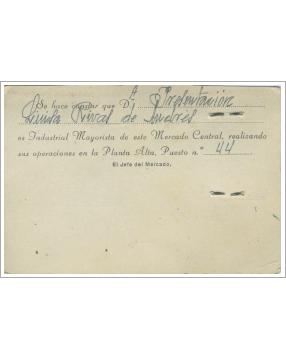 Se hace constar que D.ª Presentación
Viuda Rival de Andres
es Industrial Mayorista de este Mercado Central, realizando
sus operaciones en la Planta Alta, Puesto n.º 44
El Jefe del Mercado,